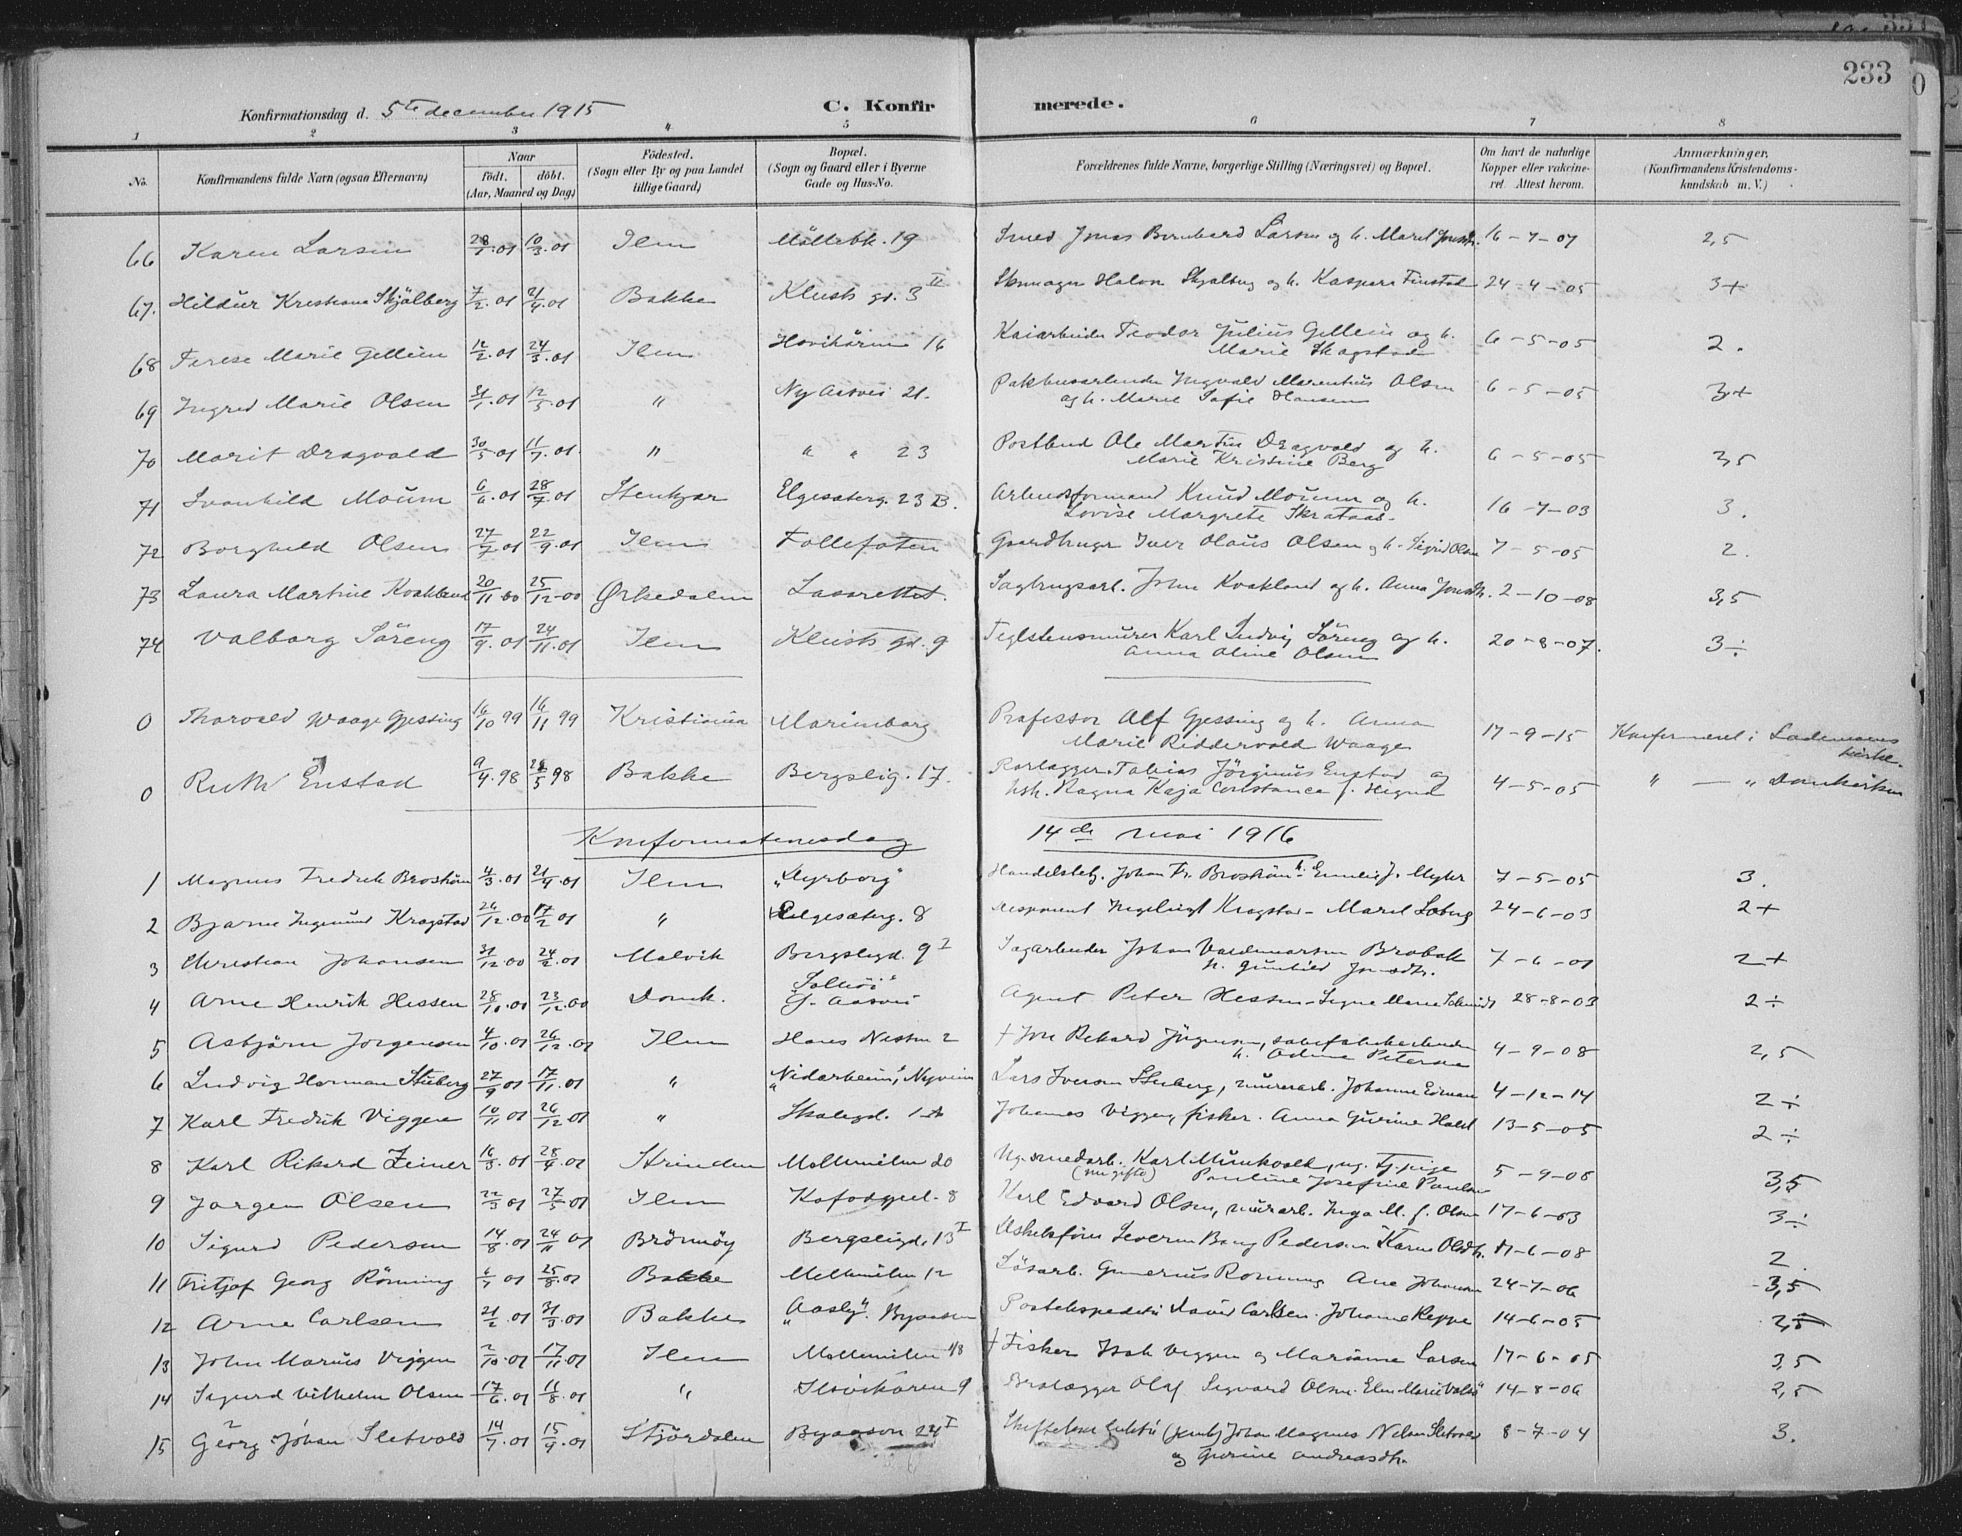 233
Konfirmationsdag d. 5te december 1915 C. Konfirmerede.
1 2 3 4 5 6 7 8
No. Konfirmandens fulde Navn (ogsaa Efternavn) Naar født. døbt. (Aar, Maaned og Dag) Fødested. (Sogn eller By og paa Landet tillige Gaard) Bopæl. (Sogn og Gaard eller i Byerne Gade og Hus-No. Forældrenes fulde Navne, borgerlige Stilling (Næringsvei) og Bopæl. Om havt de naturlige Kopper eller vakcineret. Attest herom. Anmærkninger. (Konfirmandens Kristendomskundskab m. V.)
66 Karen Larsen 28/1.01 10/3.01 Ilen Möllebk. 19 Smed Jonas Bernhard Larsen og h. Maret Jonsdt. 16-7-07 2,5
67. Hildur Kristiana Skjölberg 7/2.01 21/4.01 Bakke Klosts gd. 3 II Skomager Halvor Skjölberg og h. Kaspara Finstad 24-4-05 3+
68 Terese Marie Gellein 12/2.01 24/3.01 Ilen 16 Kaiarbeider Teodor Julius Gellein og h. 6-5-05 2.
Marie Skagstad
69 Ingrid Marie Olsen 31/1.01 12/5.01 " Ny Aasvei 21. Pakhusarbeider Ingvald Marentius Olsen 6-5-05 3+
og h. Marie Sofie Hansen
70 Marit Dragvold 30/5 01 11/7.01. " " " 23 Postbud Ole Martin Dragvold og h. 6-5-05 2,5
Marie Kristine Berg
71 Svanhild Moum 6/6.01 28/7.01 Stenkjær Elgesæterg. 23 B. Arbeidsformand Knud Moum og h. 16-7-03 3.
Lovise Margrete Skrataas.
72 Borghild Olsen 27/7 01 22/9.01 Ilen Follefoten Gaardbruger Iver Olaus Olsen og h. Sigrid Olsen 7-5-05 2.
73 Laura Martine Kvakland 20/11.00 25/12-00 Ørkedalen Lasarettet. Sagbrugsarb. John Kvakland og h. Anna Jonsdt. 2-10-08 3,5
74 Valborg Söreng 17/9.01 24/11.01 Ilen Klosts gd. 9 Teglstensmurer Karl Ludvig Söreng og h. 20-8-07. 3÷
Anna Oline Olsen
0 Thorvald Waage Gjessing 16/10 99 16/11 99 Kristiania Marienborg Professor Alf Gjessing og h. Anna 17-9-15 Konfirmeret i Lademoens
Marie Riddervold Waage kirke.
0 Ruth Enstad 9/4.98 28/5 98 Bakke Bergslig. 17. Rørlægger Tobias Jörginus Enstad og 4-5-05 " — " Domkirken
hsh. Ragna Kaja Constance f.
Konfirmationsdag 14de mai 1916
1 Magnus Fredrik Broström 4/3.01 21/4.01 Ilen "Dyrborg" Handelsbetj. Johan Fr. Broström h. Emelie J. Myhr 7-5-05 3.
2 Bjarne Ingemund Kragstad 26/12.00 17/2 01 " Elgesæterg. 8 Disponent Ingebrigt Kragstad - Maret Soberg 24-6-03 2+
3 Christian Johansen 31/12.00 24/2.01 Malvik Bergsligd. 9 I Sagarbeider Johan Valdemarsen Brobak 7-6-01 2+
h. Gunhild Jonsdt.
4 Arne Henrik Hessen 28/10.01 23/12.00 Domk. "Solliöi" Agent Peter Hessen - Signe Marie Schmidt 28-8-03 2÷
G. Aasvei
5 Asbjörn Jorgensen 4/10.01 26/12.01 Ilen Hans Nissen 2 + Jon Rikard Jörgensen, sæbefabrikarbeider 4-9-08 2,5
h. Petersen
6 Ludvig Herman Stuberg 27/9 01 17/11.01 " "Nidarheim", Nyveien Lars Iversen Stuberg, murerarb. Johanne 4-12-14 2÷
7 Karl Fredrik Viggen 10/11 01 26/12 01 " Skolegd. 1 A Johannes Viggen, fisker. Anna Gurine 13-5-05 2÷
8 Karl Rikard Zeiner 16/3.01 28/4.01 Strinden Mellemilen 20 Ug. smedarb. Karl Munkvold, ug. tj.pige 5-9-08 3,5
(nu gifte) Pauline Josefine Paulsen
9 Jorgen Olsen 22/3 01 27/5 01 Ilen Kofodgeil. 8 Karl Edvard Olsen, murarb. Inga M. f. Olsen 17-6-03 3÷
10 Sigurd Pedersen 14/8.01 24/11 01 Brönnöy Bergsligd. 13 I Severin Bang Pedersen Karen Olsdt. 17-6-08 2.
11 Fritjof Georg Rönning 6/7 01 25/8.01 Bakke Mellemilen 12 Lösarb. Gunerius Rönning Ane Johansen 24-7-06 3,5
12 Arne Carlsen 21/2.01 31/3.01 Bakke "Aasly" Byaasen Postekspeditör David Carlsen. Johanne Reppe 14-6-05 2,5
13 John Marius Viggen 2/10.01 17/11.01 Ilen Mellemilen 1/8 + Fisker Isak Viggen og Marianne Larsen 17-6-05 3,5
14 Sigurd Vilhelm Olsen 17/6.01 11/8.01 " Ilsvikören 9 Brolægger Olaf Sigvard Olsen. Elen Marie 14-8-06 2,5
15 Georg Johan Sletvold 14/7.01 15/9.01 Stjördalen Byaasen 24 I Johan Magnus Nilsen Sletvold 8-7-04 3.
og Gurine Andreasdt.